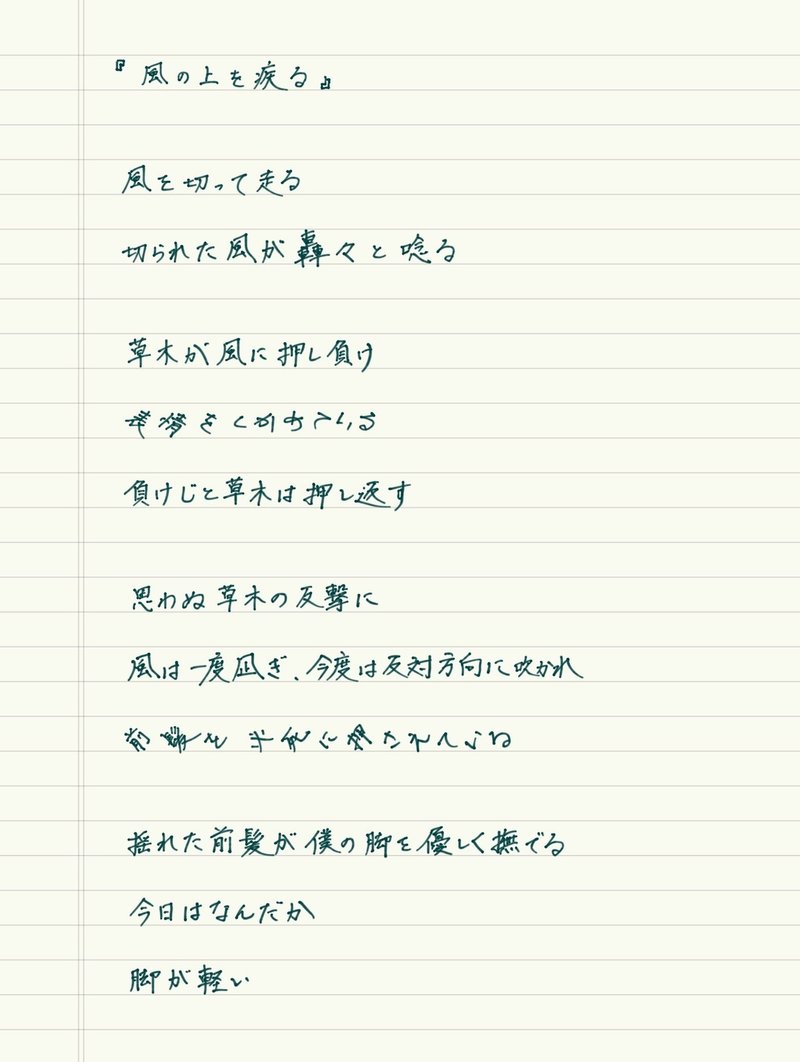 『風の上を疾る』
風を切って走る
切られた風が轟々と唸る
草木が風に押し負け
負けじと草木は押し返す
思わぬ草木の反撃に
風は一度凪ぎ、今度は反対方向に吹かれ
揺れた前髪が僕の脚を優しく撫でる
今日はなんだか
脚が軽い